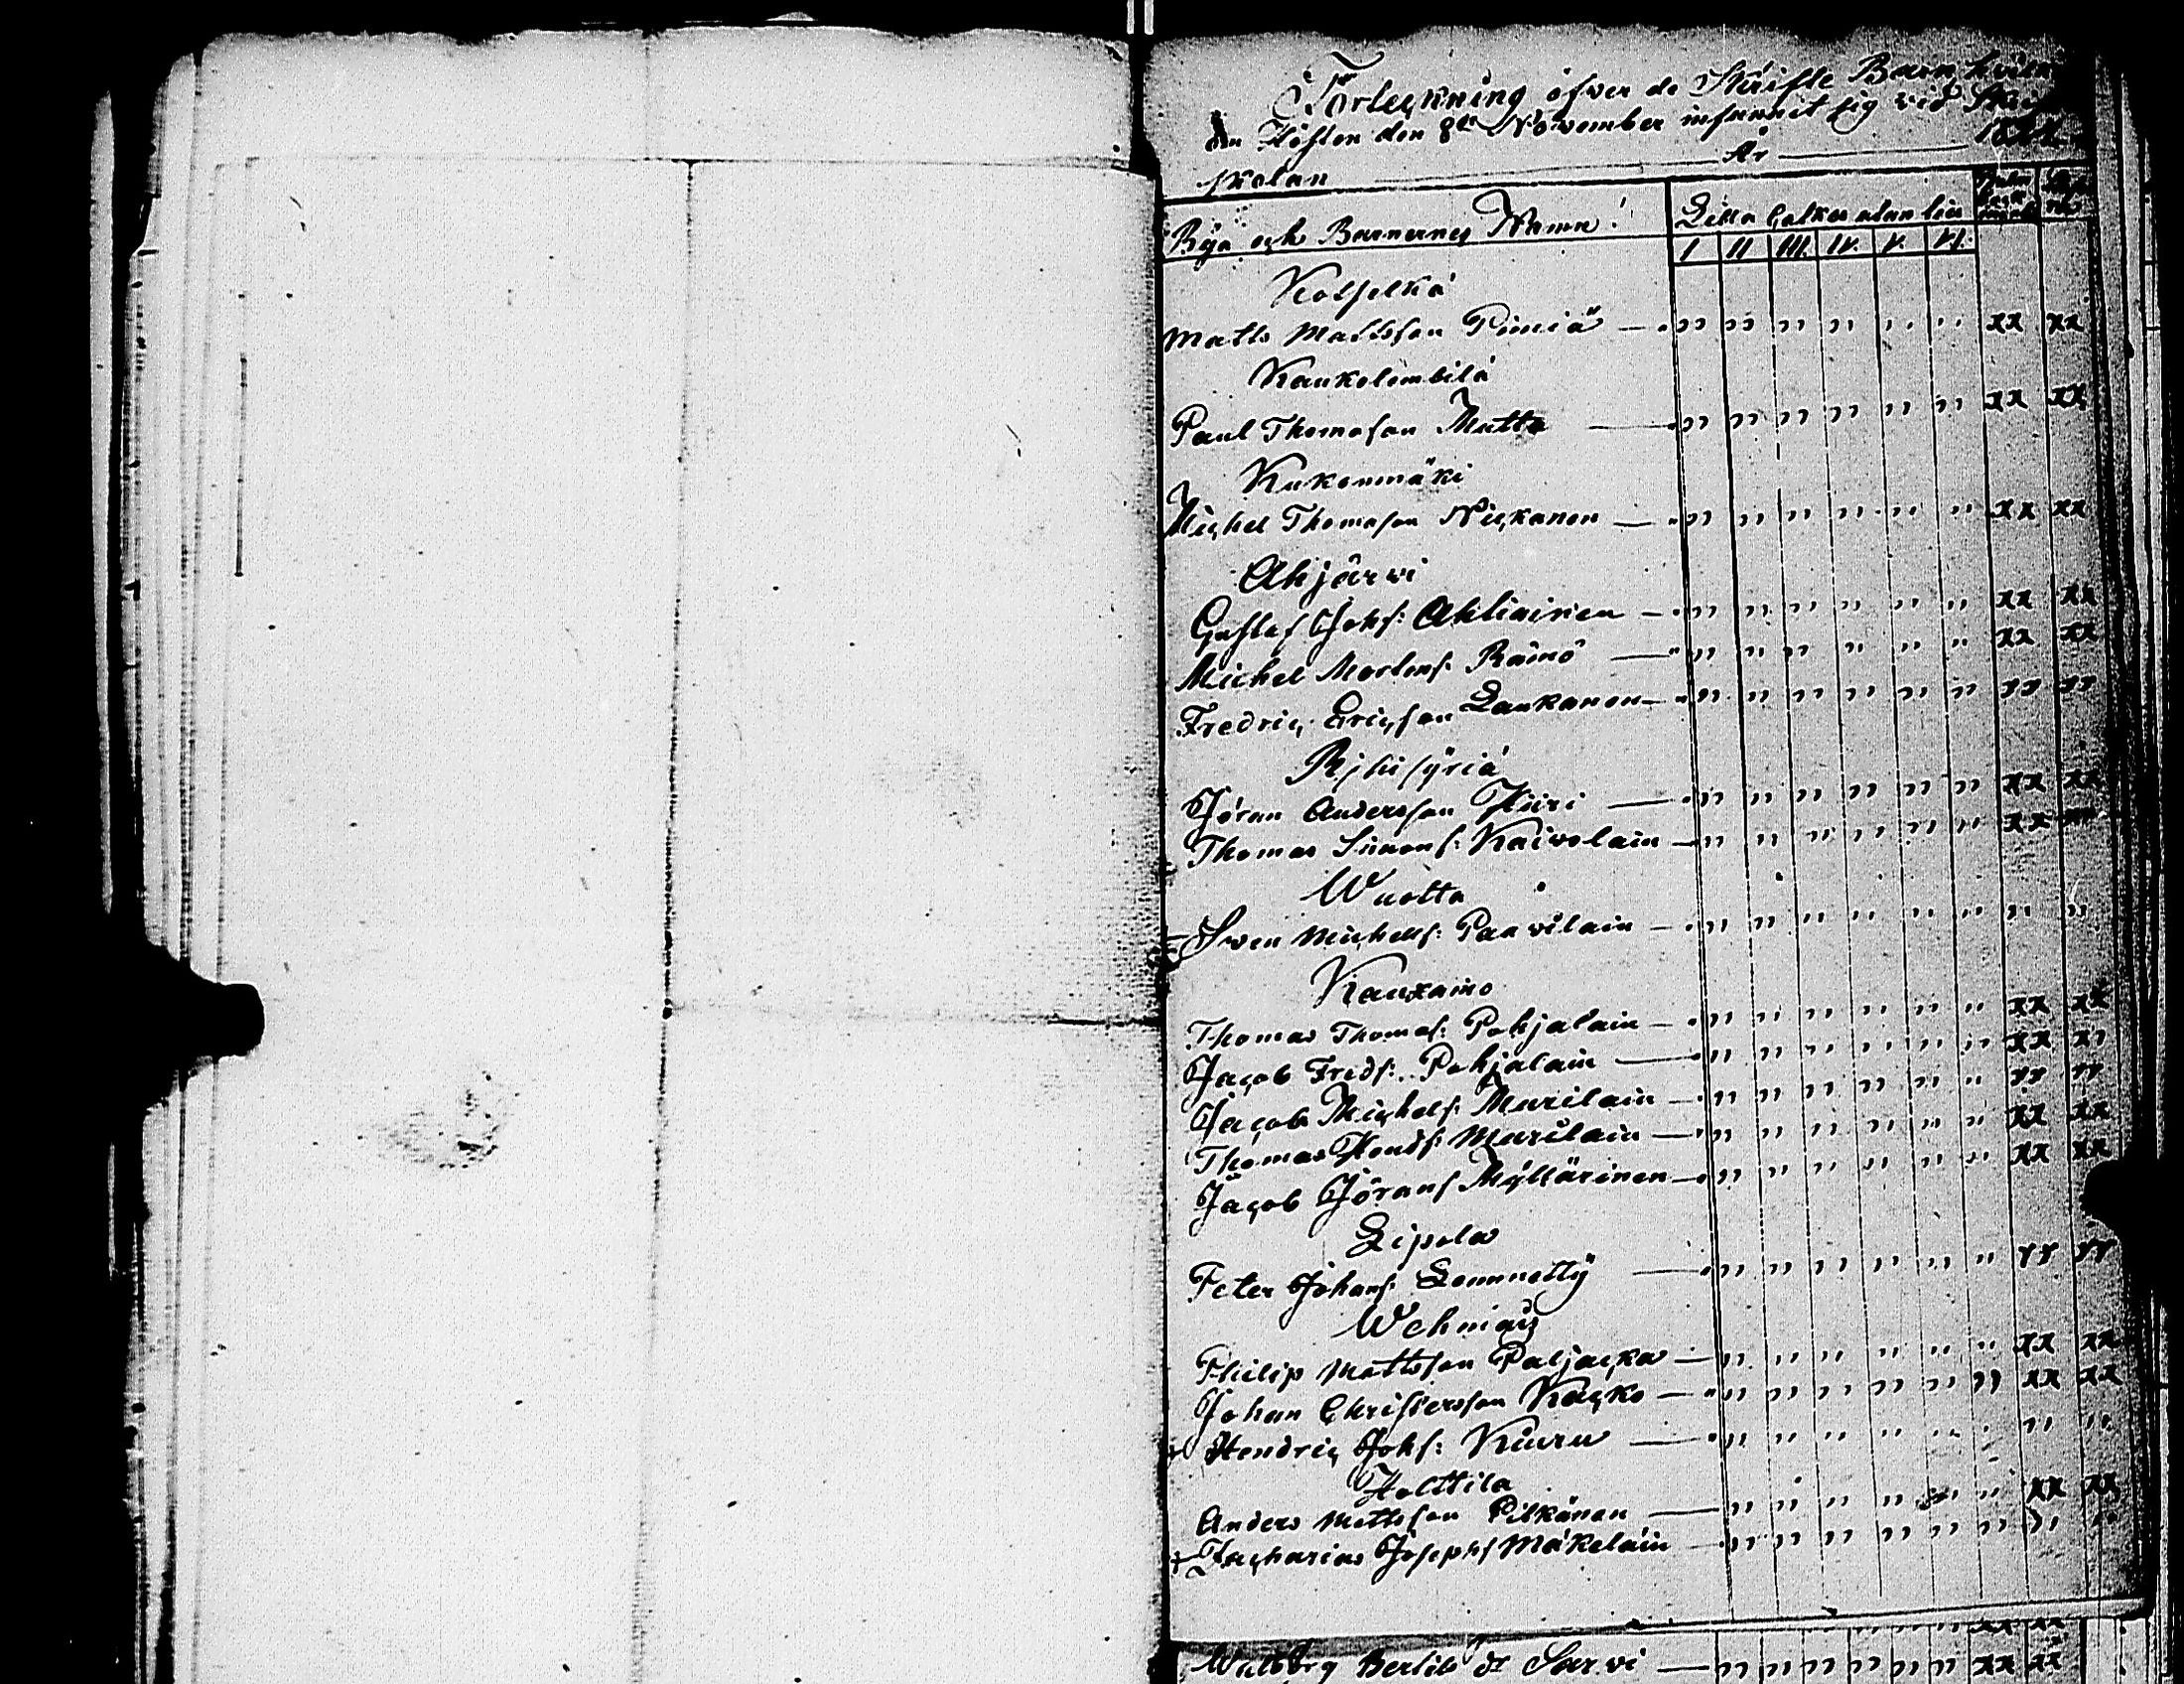 Förteckning öfver de Skrifte Barn hvilka
den Hösten den 8de November infunnit sig vid Skrift
skolan År
Bya och Barnernes Namn
Lilla Catkes utan
I II III. IV. V. VI.
Kolselkä
Matts Mattsson Pimiä — " " " " " " xx xx
Kaukolembilä
Paul Thomasson Mutto — " " " " " " xx xx
Kukonmäki
Michel Thomason Nickanen — " " " " " " xx xx
Ahjärvi
Gustaf Johs: Ahliainen — " " " " " " xx xx
Michel Mortens: Rämö — " " " " " " xx xx
Fredric Ericson Laukanen — " " " " " " rr rr
Rjhisyriä
Jöran Andersson Hiiri — " " " " " " xx xx
Thomas Simons: Kaivolain — " " " " " " xx
Wuotta
Swen Michels: Paavilain — " " " " " " " "
Kauxamo
Thomas Thomas: Pohjalain — " " " " " " xx xx
Jacob Freds: Pohjalain — " " " " " " xx
Jacob Michels: Murilain — " " " " " " rr rr
Thomas Hends: Murilain — " " " " " " xx xx
Jacob Jörans Myllärinen — " " " " " " xx xx
Lipola
Peter Johans: Lemmetty — " " " " " " rr rr
Wehmais
Philip Mattsson Paljacka — " " " " " " xx xx
Johan Christersson Kacko — " " " " " " xx xx
Hendric Johs: Kiuru — " " " " " " " "
Holttila
Anders Mattsson Pitkänen — " " " " " " xx xx
+ Zacharias Josephs Mäkeläin — " " " " " " " "
Walborg Bertils dr Sarvi — " " " " " " xx xx